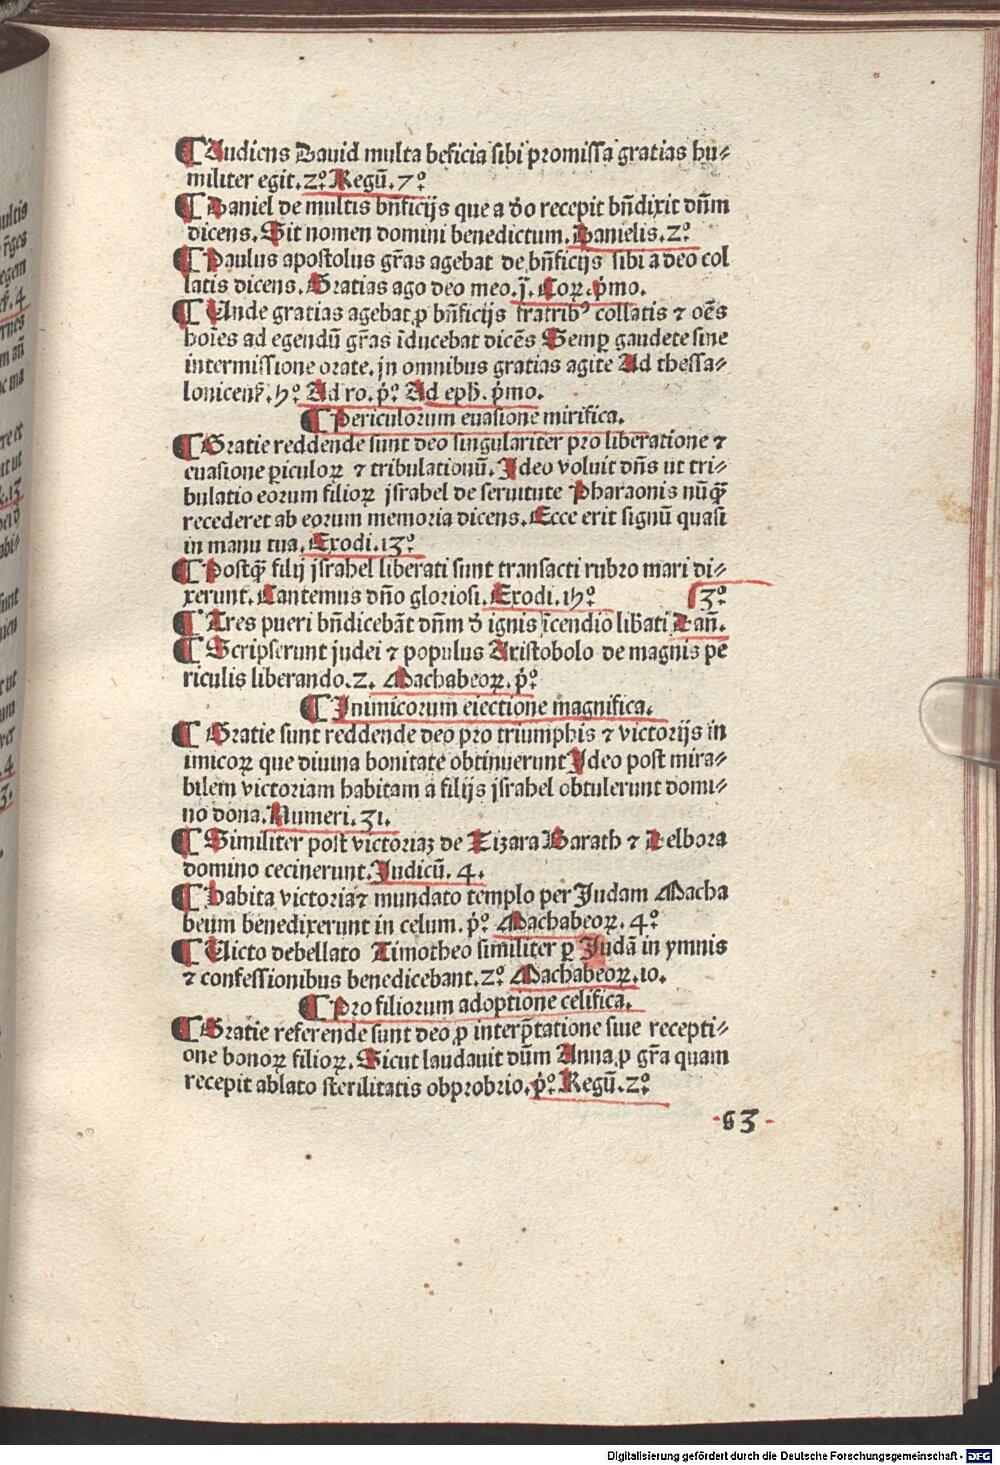 ¶ Audiens Dauid multa beficia sibi promissa gratias hu⸗
militer egit. 2º Regū. 7º
¶ Daniel de multis bn̄ficijs que a do recepit bn̄dixit dn̄m
dicens. Sit nomen domini benedictum. Danielis. 2º
¶ Paulus apostolus gr̄as agebat de bn̄ficijs sibi a deo col
latis dicens. Gratias ago deo meo. j. Coꝝ. p̄mo.
¶ Unde gratias agebat ꝓ bn̄ficijs fratribꝰ collatis ⁊ oēs
hoīes ad egendū gr̄as īducebat dicēs Semꝑ gaudete sine
intermissione orate. in omnibus gratias agite Ad thessa⸗
lonicenẜ. 5º Ad ro. p̄º Ad eph. p̄mo.
¶ Periculorum euasione mirifica.
¶ Gratie reddende sunt deo singulariter pro liberatione ⁊
euasione ꝑiculoꝝ ⁊ tribulationū. Ideo voluit dn̄s ut tri⸗
bulatio eorum filioꝝ jsrahel de seruitute Pharaonis nūꝙ̄
recederet ab eorum memoria dicens. Ecce erit signū quasi
in manu tua. Exodi. 13º
¶ Postꝙ̄ filij jsrahel liberati sunt transacti rubro mari di⸗
xerunt. Cantemus dn̄o gloriosi. Exodi. 15º [3º
¶ Tres pueri bn̄dicebāt dn̄m d̄ ignis īcendio libati Dan̄.
¶ Scripserunt judei ⁊ populus Aristobolo de magnis pe
riculis liberando. 2. Machabeoꝝ. p̄º
¶ Inimicorum eiectione magnifica.
¶ Gratie sunt reddende deo pro triumphis ⁊ victorijs in
imicoꝝ que diuina bonitate obtinuerunt Ideo post mira⸗
bilem victoriam habitam a filijs jsrahel obtulerunt domi⸗
no dona. Numeri. 31.
¶ Similiter post victoriaꝫ de Zizara Barath ⁊ Delbora
domino cecinerunt. Judicū. 4.
¶ Habita victoria ⁊ mundato templo per Judam Macha
beum benedixerunt in celum. p̄º Machabeoꝝ. 4º
¶ Uicto debellato Timotheo similiter ꝑ Judā in ymnis
⁊ confessionibus benedicebant. 2º Machabeoꝝ. 10.
¶ Pro filiorum adoptione celifica.
¶ Gratie referende sunt deo ꝓ interp̄tatione siue recepti⸗
one bonoꝝ filioꝝ. Sicut laudauit dūm Anna ꝓ gr̄a quam
recepit ablato sterilitatis obprobrio. p̄º Regū. 2º
63
Digitalisierung gefördert durch die Deutsche Forschungsgemeinschaft - DFG